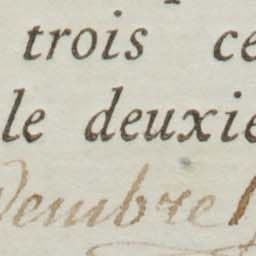 trois ce
le deuxie
vembre